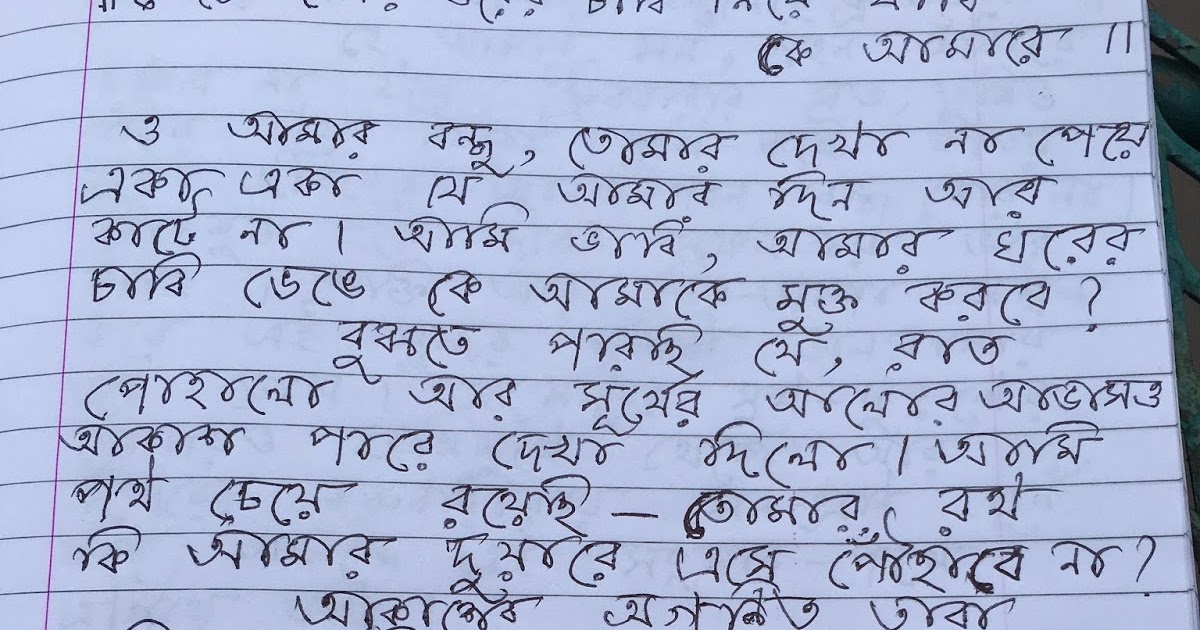 ঘরের চাবি
কে আমারে ॥
ও আমার বন্ধু, তোমার দেখা না পেয়ে
একা একা যে আমার দিন আর
কাটে না । আমি ভাবি, আমার ঘরের
চাবি ভেঙে কে আমাকে মুক্ত করবে ?
বুঝতে পারছি যে, রাত
পোহালো আর সূর্যের আলোর আভাসও
আকাশ পারে দেখা দিলো । আমি
পথ চেয়ে রয়েছি — তোমার রথ
কি আমার দুয়ারে এসে পৌঁছাবে না ?
আকাশের অগণিত তারা